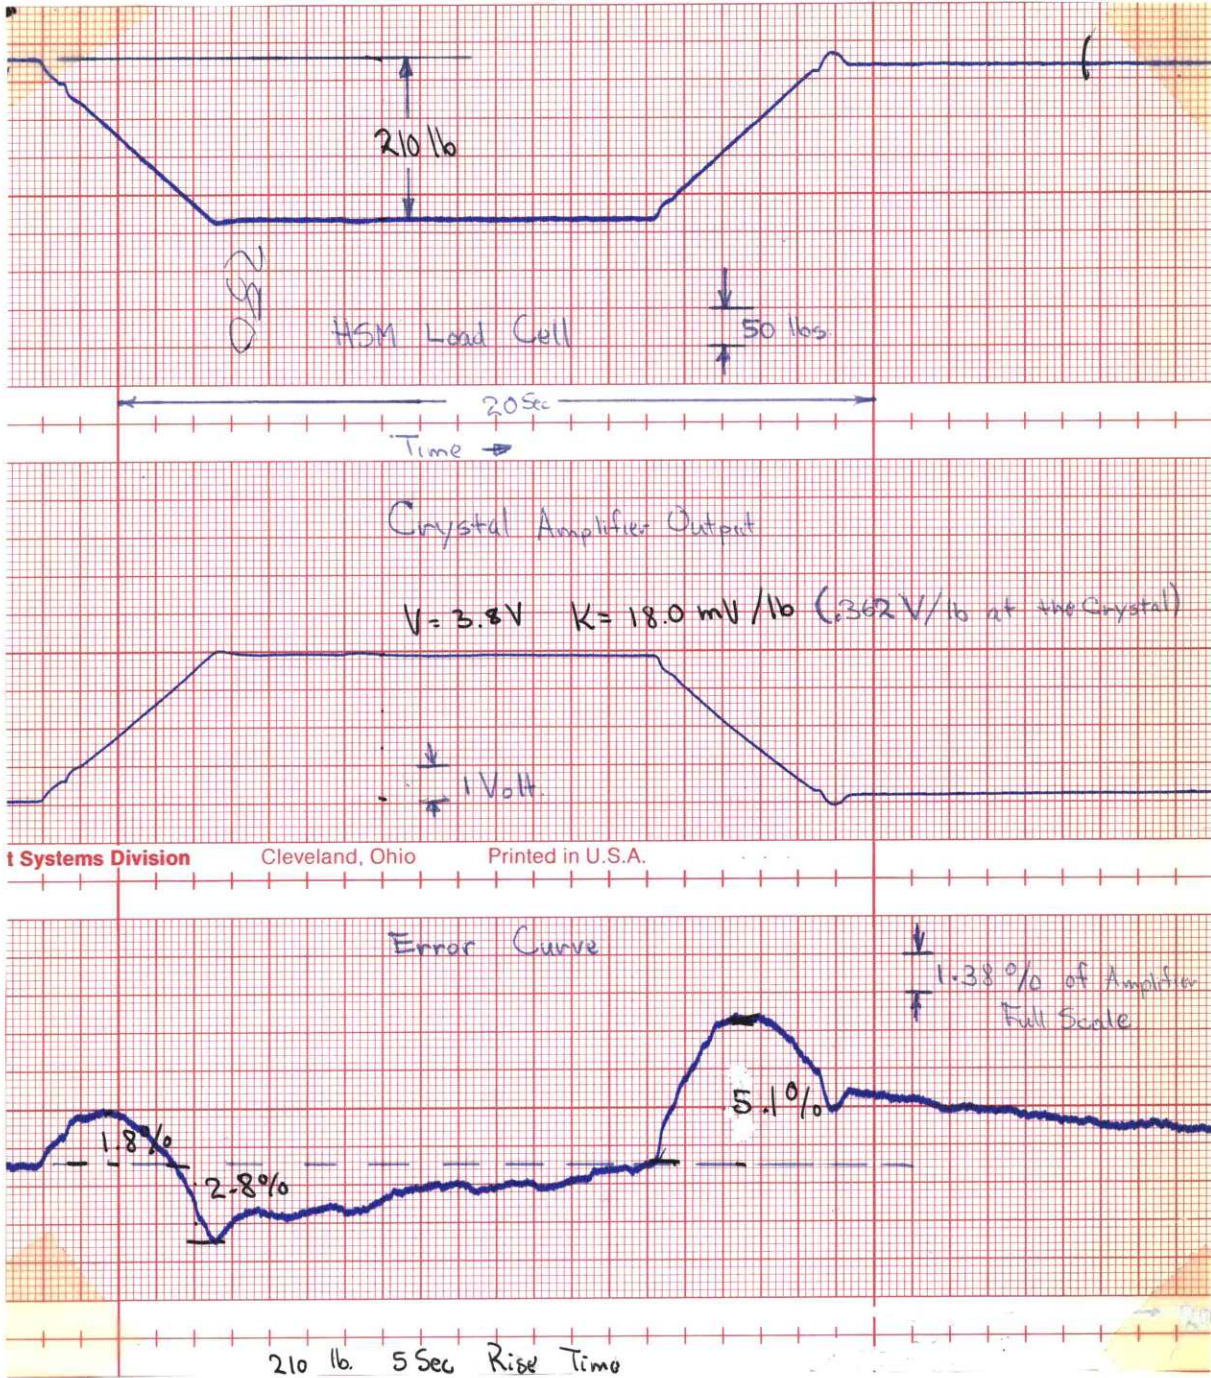 210 lb
HSM Load Cell
50 lbs.
20 Sec
Time →
Crystal Amplifier Output
V = 3.8V K = 18.0 mV/lb (.362 V/lb at the Crystal)
1 Volt.
t Systems Division Cleveland, Ohio Printed in U.S.A.
Error Curve
1.38% of Amplifier
Full Scale
5.1%
1.8%
2.8%
210 lb. 5 Sec Rise Time